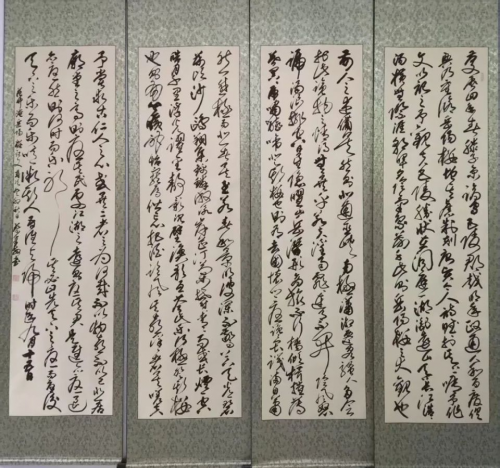 慶曆四年春滕子京謫守巴陵郡越明年政通人和百廢俱
興乃重修岳陽樓增其舊制刻唐賢今人詩賦於其上屬予作
文以記之予觀夫巴陵勝狀在洞庭一湖銜遠山吞長江浩浩
湯湯橫無際涯朝暉夕陰氣象萬千此則岳陽樓之大觀也
前人之述備矣然則北通巫峽南極瀟湘遷客騷人多會
於此覽物之情得無異乎若夫霪雨霏霏連月不開陰風怒
號濁浪排空日星隱曜山岳潛形商旅不行檣傾楫摧薄
暮冥冥虎嘯猿啼登斯樓也則有去國懷鄉憂讒畏譏滿目蕭
然感極而悲者矣至若春和景明波瀾不驚上下天光一碧
萬頃沙鷗翔集錦鱗游泳岸芷汀蘭郁郁青青而或長煙一空
皓月千里浮光躍金靜影沉璧漁歌互答此樂何極登斯樓
也則有心曠神怡寵辱偕忘把酒臨風其喜洋洋者矣嗟夫
予嘗求古仁人之心或異二者之為何哉不以物喜不以己悲居
廟堂之高則憂其民處江湖之遠則憂其君是進亦憂退
亦憂然則何時而樂耶其必曰先天下之憂而憂後
天下之樂而樂乎噫微斯人吾誰與歸時六年九月十五日